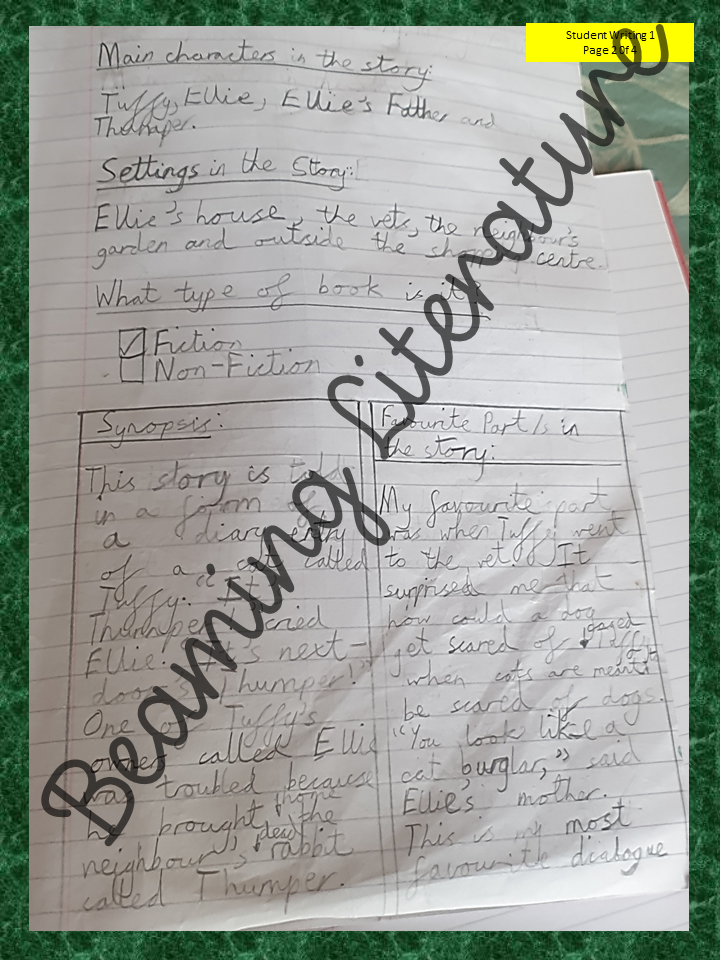 Student Writing 1
Page 2 0f 4
Main characters in the story:
Tuffy, Ellie, Ellie's Father and
Thumper.
Settings in the Story:
Ellie's house, the vets, the neighbour's
garden and outside the shopping centre.
What type of book is it?
Fiction
Non-Fiction
Synopsis:
This story is told
in a form of
a diary entry
of a cat called
Tuffy. "It's
Thumper!" cried
Ellie. "It's next-
door's Thumper!"
One of Tuffy's
owner called Ellie
was troubled because
he brought home the
neighbour's dead rabbit
called Thumper.
Favourite Part/s in
the story:
My favourite part
was when Tuffy went
to the vet. It
surprised me that
how could a dog
get scared of Tuffy
when cats are meant to
be scared of dogs.
"You look like a
cat burglar," said
Ellie's mother.
This is my most
favourite dialogue
Beaming Literature